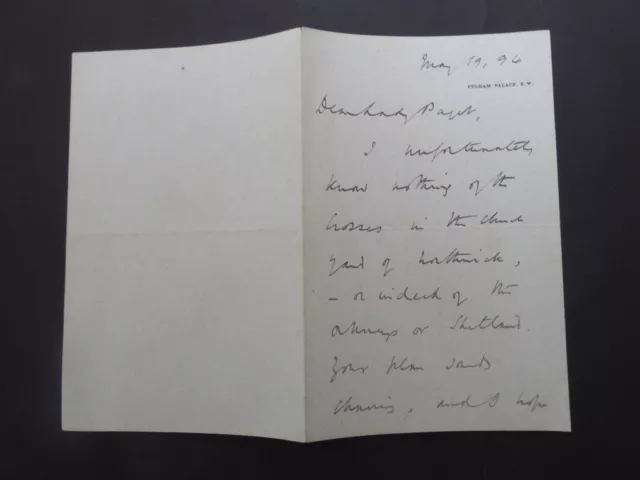 May 19, 94
FULHAM PALACE, S.W.
Dear Lady Paget,
I unfortunately
know nothing of the
Crosses in the Church
yard of Northwick,
- or indeed of the
Orkneys or Shetland.
Your plan sounds
charming, and I hope